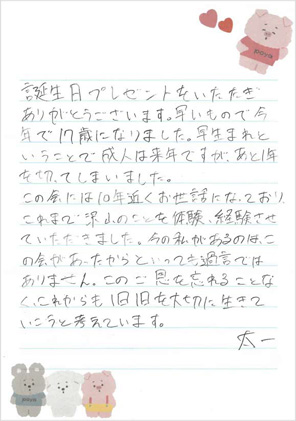 誕生日プレゼントをいただき
ありがとうございます。早いもので今
年で17歳になりました。早生まれと
いうことで成人は来年ですが、あと1年
を切ってしまいました。
この会には10年近くお世話になっており、
これまで沢山のことを体験、経験させ
ていただきました。今の私があるのは、こ
の会があったからといっても過言では
ありません。このご恩を忘れることな
く、これからも1日1日を大切に生きて
いこうと考えています。
太一